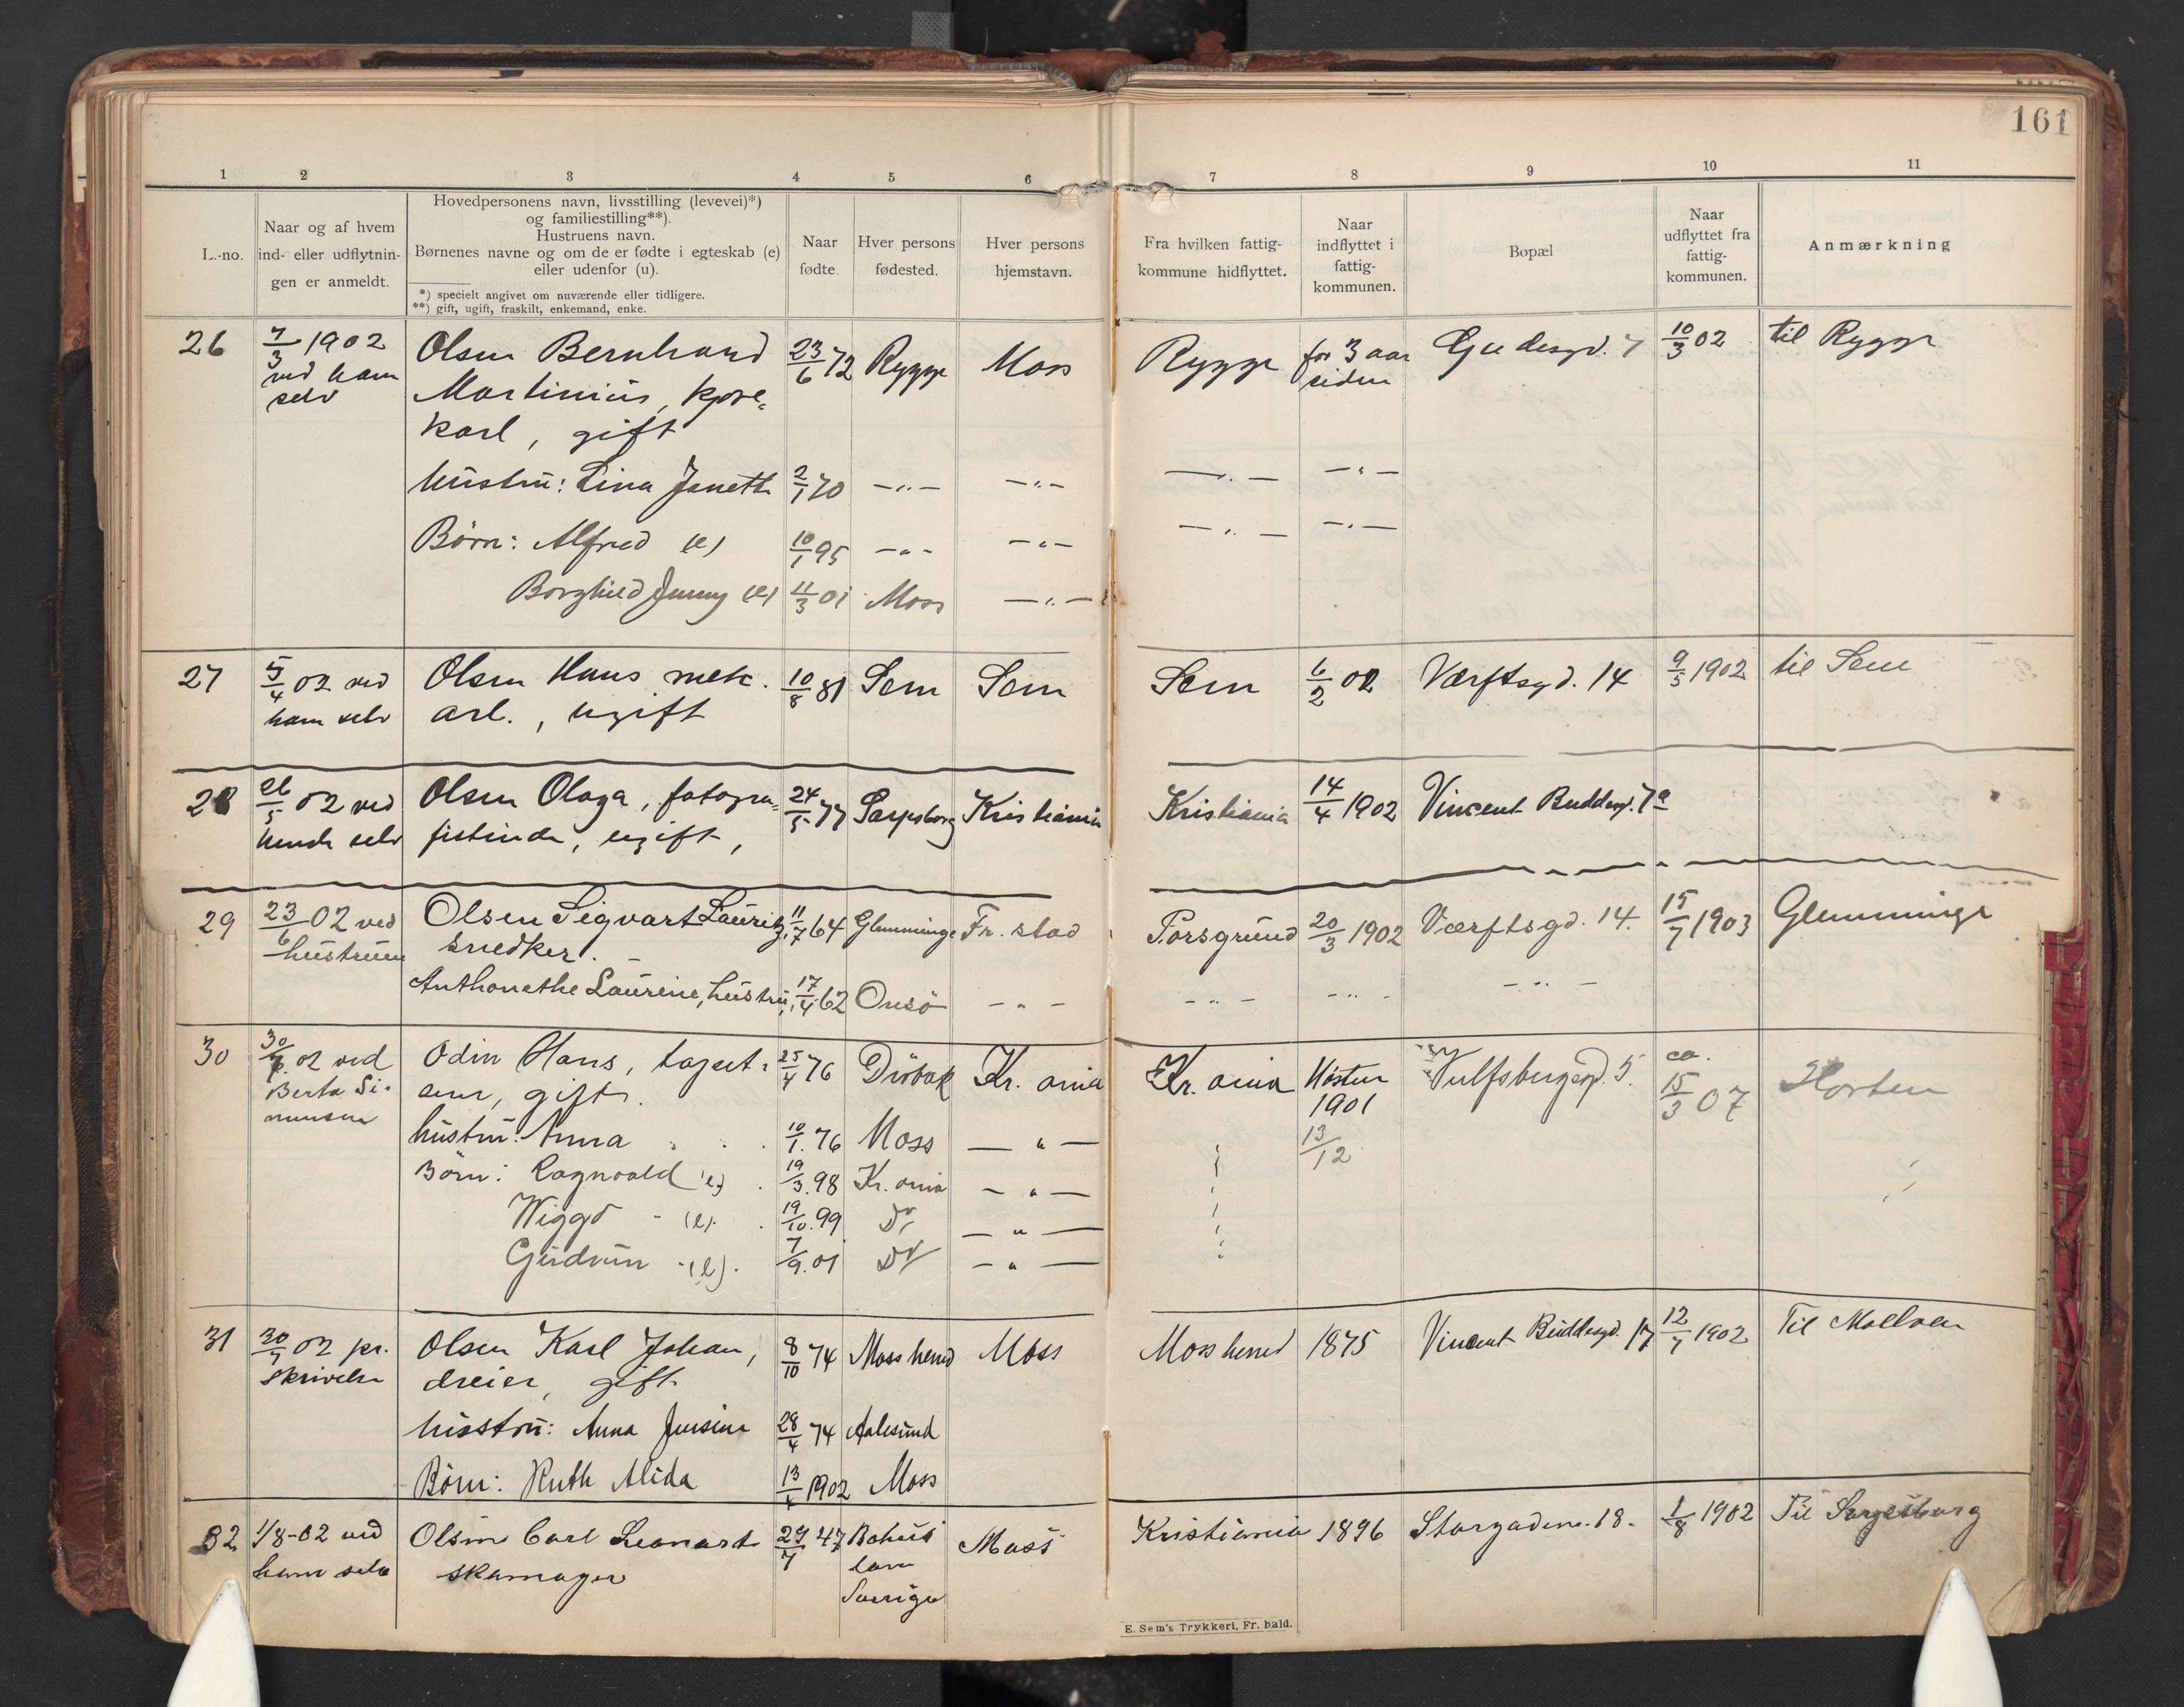 161
1 2 3 4 5 6 7 8 9 10 11
L.-no.
Naar og af hvem
ind- eller udflytnin-
gen er anmeldt.
Hovedpersonens navn, livsstilling (levevei)*)
og familiestilling**).
Hustruens navn.
Børnenes navne og om de er fødte i egteskab (e)
eller udenfor (u).
*) specielt angivet om nuværende eller tidligere.
**) gift, ugift, fraskilt, enkemand, enke.
Naar
fødte.
Hver persons
fødested.
Hver persons
hjemstavn.
Fra hvilken fattig-
kommune hidflyttet.
Naar
indflyttet i
fattig-
kommunen.
Bopæl
Naar
udflyttet fra
fattig-
kommunen.
Anmærkning
26 7/3 1902 Olsen Bernhard 23/6 72 Rygge Moss Rygge for 3 aar Gudesgd. 7 10/3 02 til Rygge
ved ham Martinius, kjøre= siden
selv karl, gift
hustru: Lina Janette 2/1 70 —"— —"— —"— —"—
Børn: Alfred (e) 10/1 95 —"— —"— —"— —"—
Borghild Jenny (e) 11/3 01 Moss —"—
27 5/4 02 ved Olsen Hans mek. 10/8 81 Sem Sem Sem 6/2 02 Værftsgd. 14 9/5 1902 til Sem
ham selv arb., ugift
28 26/5 02 ved Olsen Olaga, fotogra= 24/5 77 Sarpsborg Kristiania Kristiania 14/4 1902 Vincent Buddesgd. 7a
hende selv fistinde, ugift,
29 23/6 02 ved Olsen Sigvart Lauritz, 11/7 64 Glemminge Fr. stad Porsgrund 20/3 1902 Værftsgd. 14. 15/7 1903 Glemminge
hustruen snedker.
Anthonethe Laurine, hustru, 17/4 62 Onsö —"— —"— —"— —"—
30 30/7 02 ved Odin Hans, tapet= 25/4 76 Dröbak Kr. ania Kr. ania Høsten Vulfsbergsgd. 5. ca. 15/3 07 Horten
Berta Si- serer, gift. 1901
monsen hustru: Anna 10/1. 76 Moss —"— 13/12
Börn: Ragnvald (e) 19/3. 98 Kr. ania —"—
Wiggo - (e). 19/10. 99 Do —"—
Gudrun - (e). 7/9. 01 Do —"—
31 30/7 02 pr. Olsen Karl Johan, 8/10 74 Moss herred Moss Moss herred 1875 Vincent Buddesgd. 17 12/7 1902 Til Mellem
skrivelse dreier, gift
hustru: Anna Jensine 28/4 74 Aalesund
Börn: Ruth Alida 13/4 1902 Moss
32 1/8-02 ved Olsen Carl Leonart 29/7 47 Bohus Moss Kristiania 1896 Storgaden. 18. 1/8 1902 Til Sarpsborg
ham selv skomager län
Sverige
E. Sem's Trykkeri, Fr. hald.